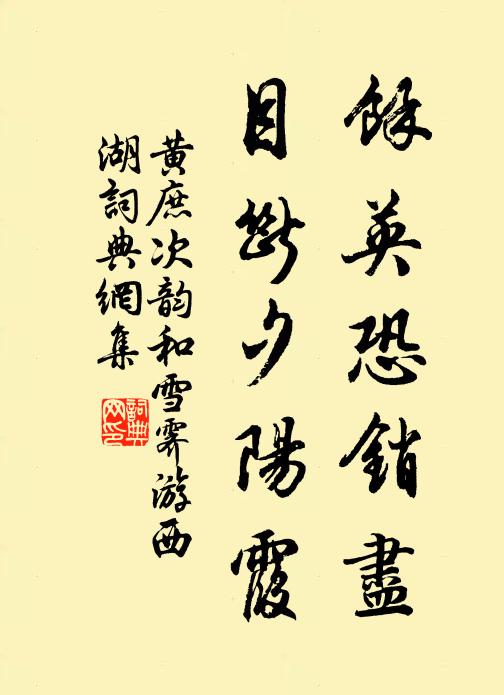 餘英恐銷盡
目斷夕陽霞
黃庶次韵和雪霁游西
湖詞典網集
詞典
网印